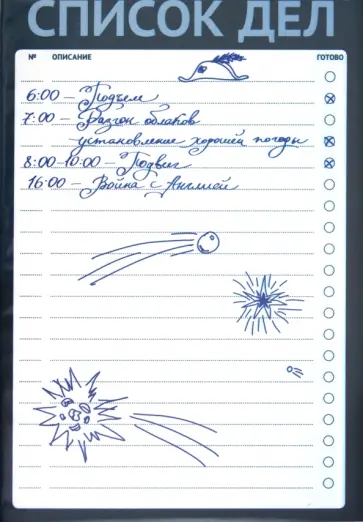 СПИСОК ДЕЛ
№ ОПИСАНИЕ ГОТОВО
6:00 – Подъем
7:00 – Разгон облаков
установление хорошей погоды
8:00-10:00 – Подвиг
16:00 – Война с Англией